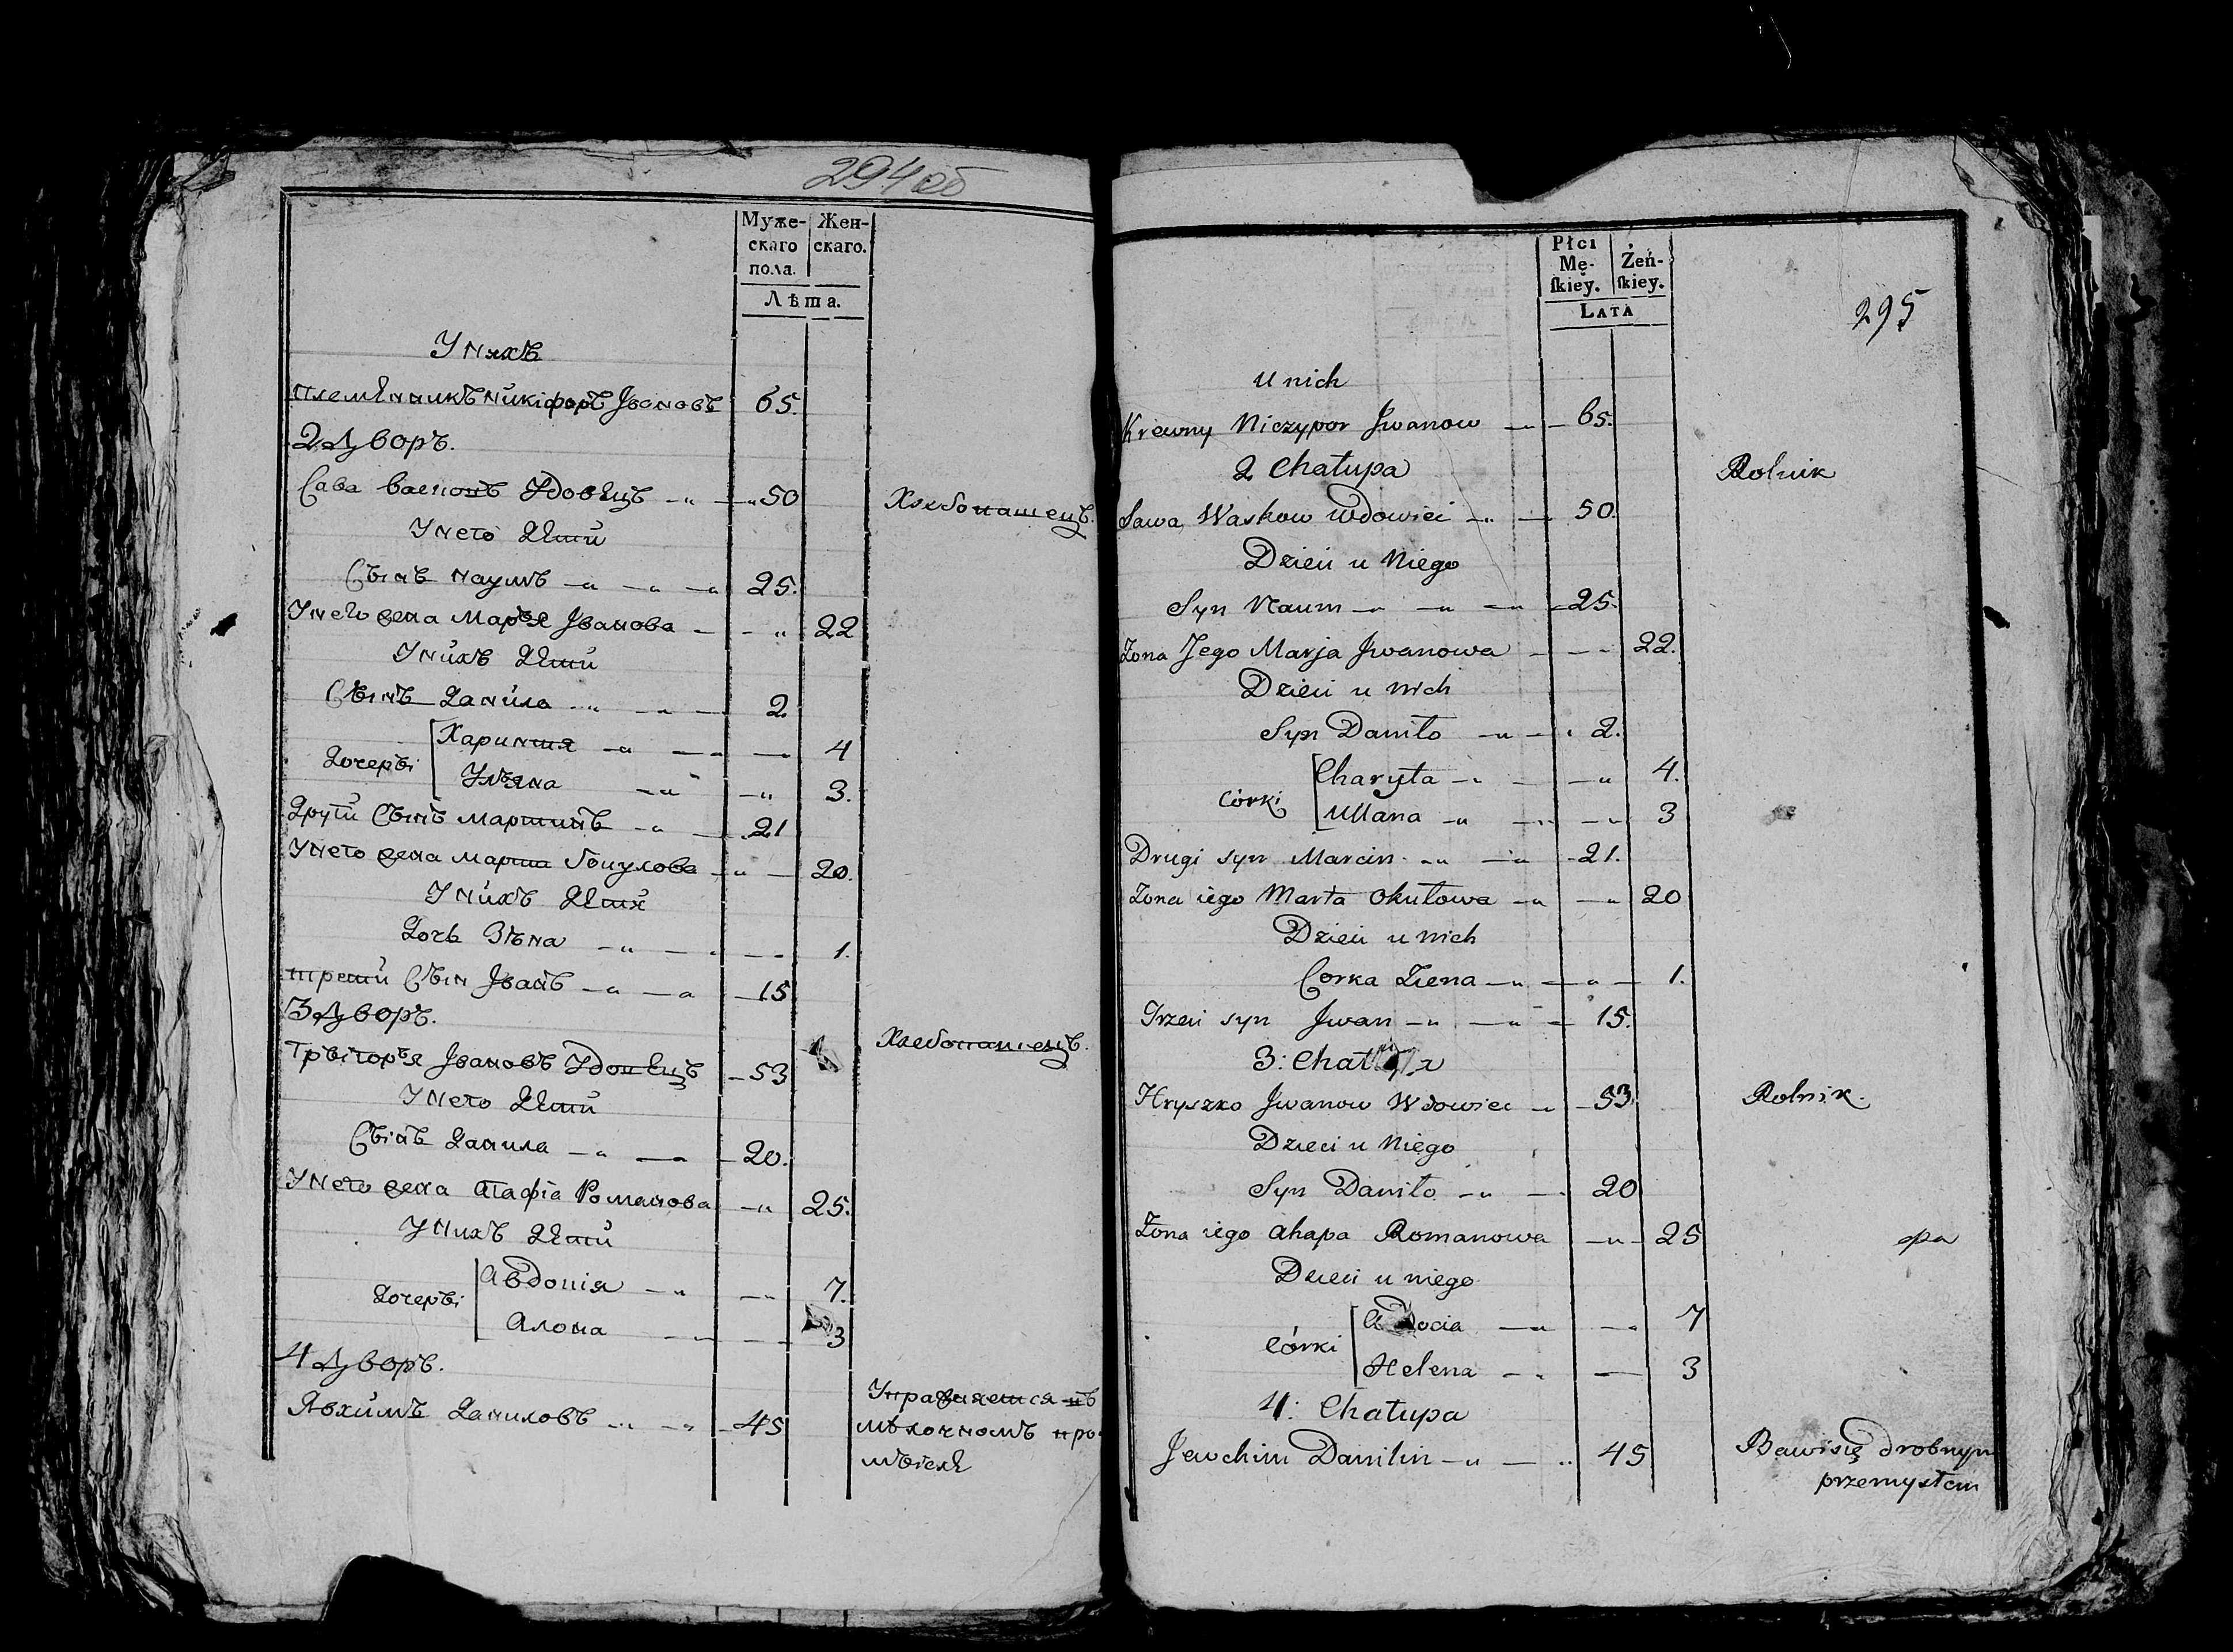 294 об
Муже-
скаго
пола.
Жен-
скаго.
Лѣта.
У няхъ
племѣнникъ никіфоръ Івановъ 65.
2 Дворъ.
Сава Васковъ Удовѣцъ 50
Хлебопашецъ.
У него Дѣти
Сынъ наумъ 25.
У него жена Марья Іванова 22
У нихъ Дѣти
Сынъ Данила 2
Дочеръі
Харитя 4
Ульяна 3.
Други Сынъ мартинъ 21
У него жена марта 20.
У нихъ Дѣти
Дочь Зѣна 1.
трети Сын Іванъ 15
3 Дворъ.
Хлебопашецъ.
Грьігорья Івановъ Удовѣцъ 53
У него Дѣти
Сынъ Данила 20.
У него жена агафіа Романова 25.
У нихъ Дѣти
Дочеръі
Авдоція 7.
Алона 3
4 Дворъ.
Явхимъ Даниловъ 45
Упражняется въ
мѣлочномъ про
мыслѣ
Płci
Mę-
skiey.
Żeń-
skiey.
LATA
295
u nich
Krewny Niczypor Jwanow 65.
2 Chałupa
Rolnik
Sawa Waskow wdowiec 50.
Dzieci u Niego
Syn Naum 25.
Żona Jego Marja Jwanowa 22.
Dzieci u nich
Syn Daniło 2.
Córki
Charyta 4.
Ullana 3
Drugi syn Marcin 21.
Żona iego Marta Okułowa 20
Dzieci u nich
Corka Ziena 1.
Trzeci syn Jwan 15.
3: Chałupa
Hryszko Jwanow Wdowiec 53.
Rolnik.
Dzieci u Niego
Syn Daniło 20
Żona iego Ahapa Romanowa 25
Dzieci u niego
Córki
Adocia 7
Helena 3
4: Chałupa
Jewchim Danilin 45
Bawi się drobnym
przemysłem